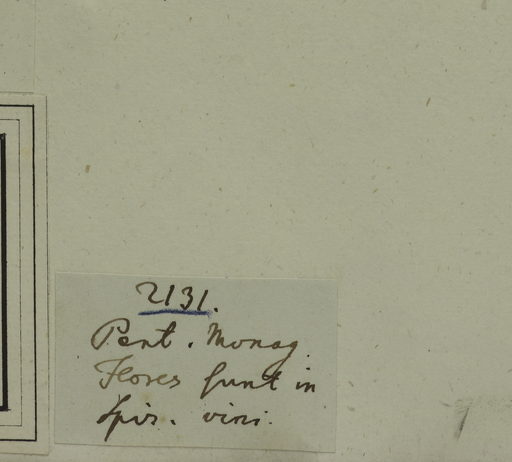 2131.
Pent. Monog.
Flores sunt in
Spir. vini.